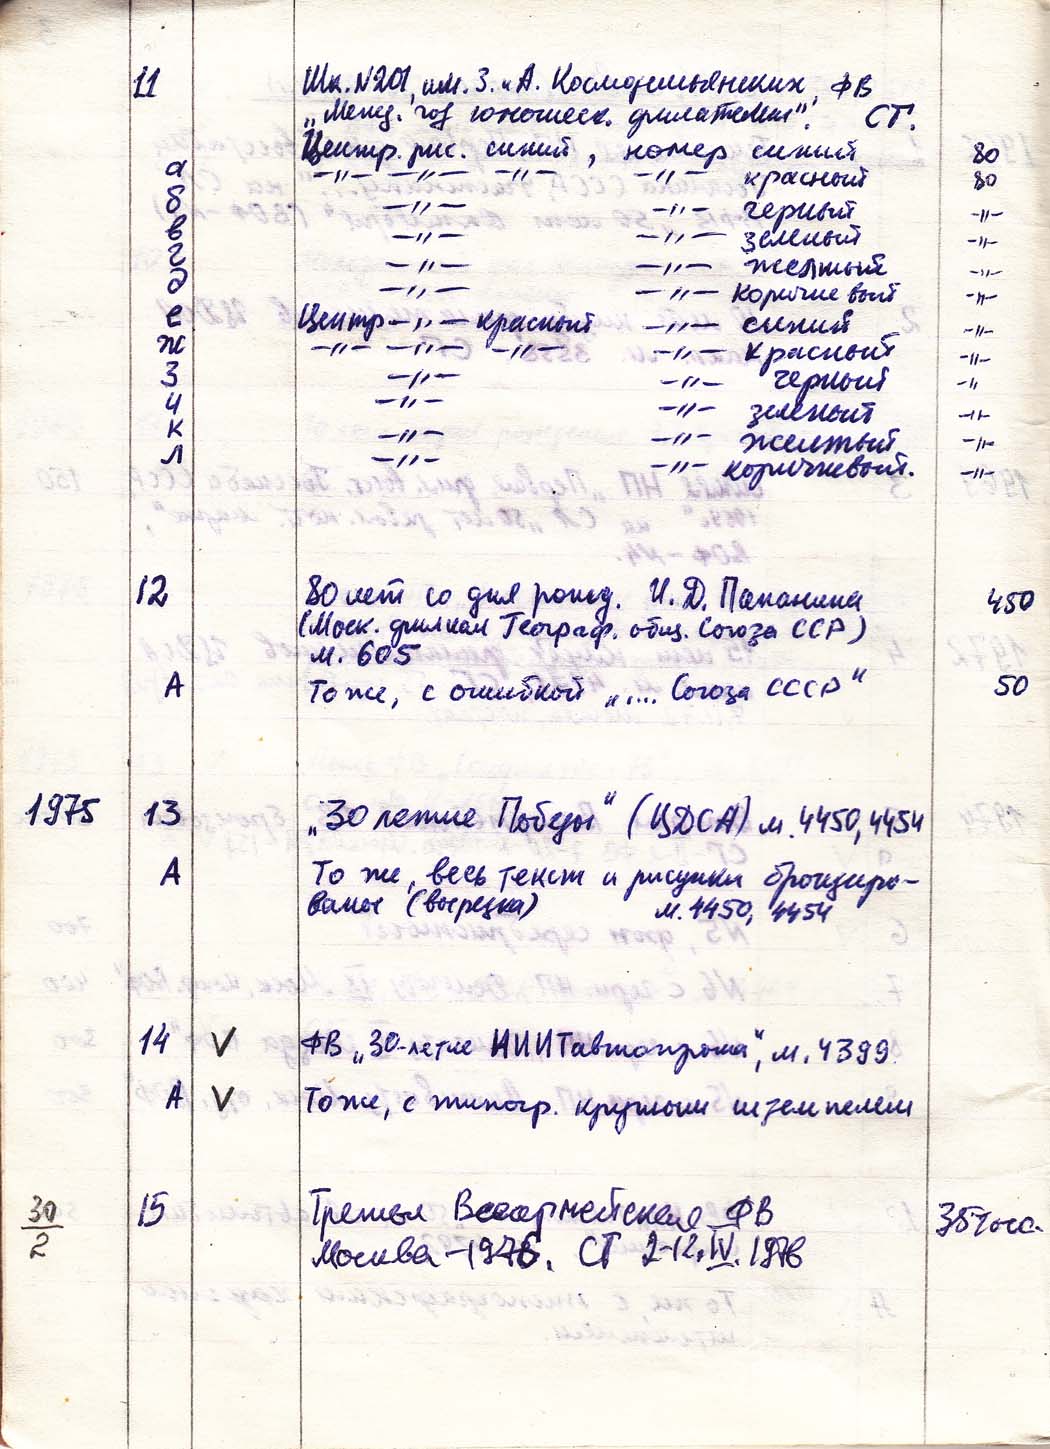 11 Шк. N201, им. З. и А. Космодемьянских, ФВ
„Межд. год юношеск. филателии". СГ.
Центр. рис. синий, номер синий 80
а -"- -"- -"- -"- красный 80
б -"- -"- черный -"-
в -"- -"- зеленый -"-
г -"- -"- желтый -"-
д -"- -"- коричневый -"-
е Центр -"- красный -"- синий -"-
ж -"- -"- -"- -"- красный -"-
з -"- -"- черный -"-
и -"- -"- зеленый -"-
к -"- -"- желтый -"-
л -"- -"- коричневый. -"-
12 80 лет со дня рожд. И. Д. Папанина 450
(Моск. филиал Географ. общ. Союза ССР)
м. 605
А То же, с ошибкой „.... Союза СССР" 50
1975 13 „30 летие Победы" (ЦДСА) м. 4450, 4454
А То же, весь текст и рисунки бронзиро-
ваны (вырезка) м. 4450, 4454
14 V ФВ „30-летие НИИТавтопрома", м. 4399
А V То же, с типогр. круглым штемпелем
30/2 15 Третья Всеармейская ФВ 35 тыс.
Москва - 1976. СГ 2-12.IV.1976